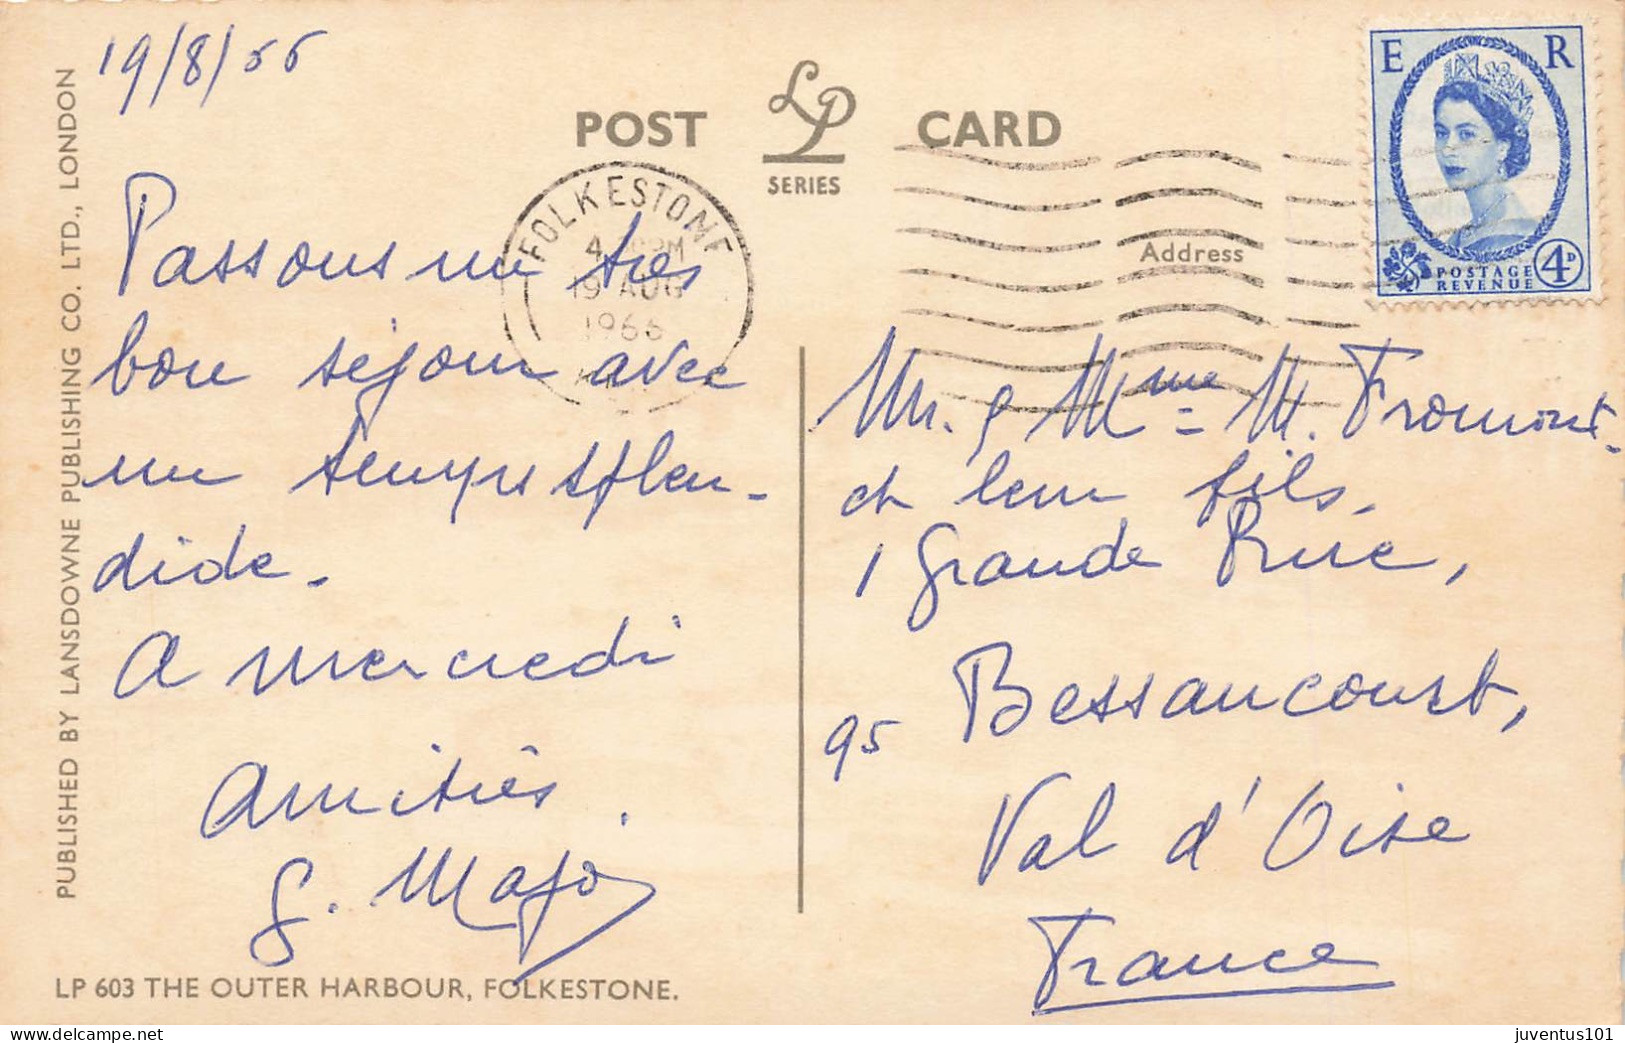 19/8/66
POST CARD
LP
SERIES
E R
POSTAGE
REVENUE
4D
FOLKESTONE
PM
19 AUG
1966
Address
PUBLISHED BY LANSDOWNE PUBLISHING CO. LTD., LONDON
Passons un très
bon séjour avec
un temps splen-
dide.
A mercredi
Amitiés.
Mr. & Mme M. Fromont
et leur fils.
1 Grande Rue,
Bessancourt,
95
Val d'Oise
France
LP 603 THE OUTER HARBOUR, FOLKESTONE.
juventus101